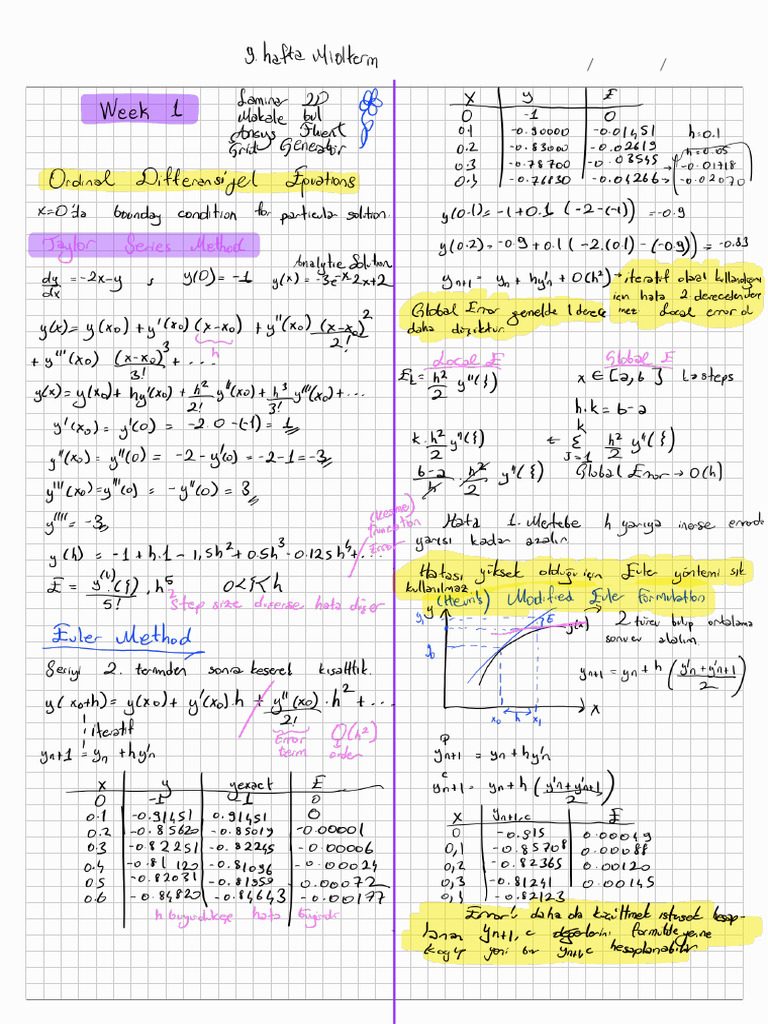 9. hafta Midterm
/ /
Week 1
Laminar 2D
Makale bul
Ansys Fluent
Grid Generator
Ordinal Differansiyel Equations
x=0'da bounday condition for particular solution.
Taylor Series Method
Analytic Solution
dy/dx = -2x-y , y(0) = -1 y(x) = -3e^-x -2x+2
y(x) = y(x0) + y'(x0) (x-x0) + y''(x0) (x-x0)^2/2!
h
+ y'''(x0) (x-x0)^3/3! + ...
y(x) = y(x0) + hy'(x0) + h^2/2! y''(x0) + h^3/3! y'''(x0) + ...
y'(x0) = y'(0) = -2.0 -(-1) = 1
y''(x0) = y''(0) = -2 - y'(0) = -2-1 = -3
y'''(x0) = y'''(0) = -y''(0) = 3
y'''' = -3
(Kesme) Truncation Error
y(h) = -1 + h.1 - 1,5h^2 + 0.5h^3 - 0.125h^4 + ...
0<ξ<h
Step size düşerse hata düşer
Euler Method
Seriyi 2. terimden sonra keserek kısalttık.
y(x0+h) = y(x0) + y'(x0).h + y''(x0)/2! . h^2 + ...
Error term O(h^2) order
iteratif
yn+1 = yn + hy'n
x y yexact E
0 -1 -1 0
0.1 -0.91451 0.91451 0
0.2 -0.85620 -0.85019 -0.00001
0.3 -0.82251 -0.82245 -0.00006
0.4 -0.81120 -0.81096 -0.00024
0.5 -0.82031 -0.81959 -0.00072
0.6 -0.84820 -0.84643 -0.00177
h büyüdükçe hata büyür
x y E
0 -1 0
0.1 -0.90000 -0.01451 h=0.1
0.2 -0.83000 -0.02619 h=0.05
0.3 -0.78700 -0.03545 → -0.01718
0.4 -0.76830 -0.04266 → -0.02070
y(0.1) = -1+0.1 (-2-(-1)) = -0.9
y(0.2) = -0.9 + 0.1 (-2.(0.1) - (-0.9)) = -0.83
yn+1 = yn + hy'n + O(h^2) → iteratif olarak kullandığımız
için hata 2. dereceden
Local error
Global Error genelde 1 derece
daha düşüktür.
Local E Global E
EL = h^2/2 y''(ξ) x ∈ [a,b] k steps
h.k = b-a
k. h^2/2 y''(ξ) ← k Σ J=1 h^2/2 y''(ξ)
b-a/h . h^2/2 y''(ξ) Global Error → O(h)
Hata 1. Mertebe h yarıya inerse errorda
yarısı kadar azalır.
Hatası yüksek olduğu için Euler yöntemi sık
kullanılmaz.
(Heun's) Modified Euler Formulation
y
y1
E
y(x)
y0
x0 h x1 x
2 türev bulup ortalama
alalım.
yn+1 = yn + h (y'n + y'n+1 / 2)
P
yn+1 = yn + hy'n
C
yn+1 = yn + h (y'n + y'n+1 / 2)
x yn+1,c E
0 -0.915 0.00049
0,1 -0.85708 0.00088
0,2 -0.82365 0.00120
0,3 -0.81241 0.00145
0,4 -0.82123
Error'ı daha da küçültmek istersek hesap-
lanan yn+1,c değerlerini formülde yerine
koyup yeni bir yn+1,c hesaplanabilir